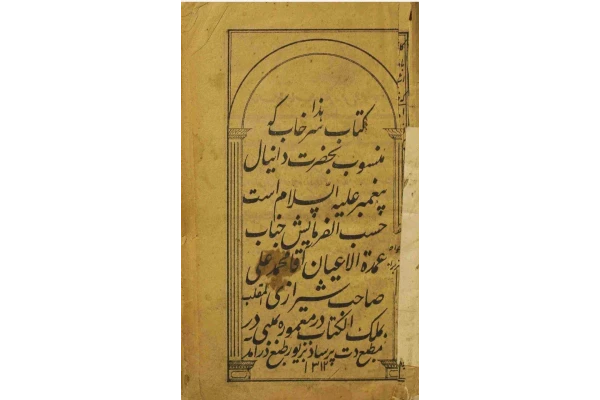 هذا
کتاب سرخاب که
منسوب بحضرت دانیال
پیغمبر علیه السلام است
حسب الفرمایش جناب
عمدة الاعیان آقا محمد علی
صاحب شیرازی الملقب
بملک الکتاب در معموره بمبئی در
مطبع دت پرساد بزیور طبع درآمد
۱۳۱۲